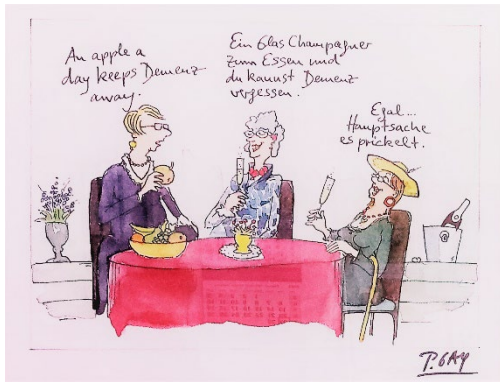 An apple a
day keeps Demenz
away.
Ein Glas Champagner
zum Essen und
du kannst Demenz
vergessen.
Egal...
Hauptsache
es prickelt.
P. GAY